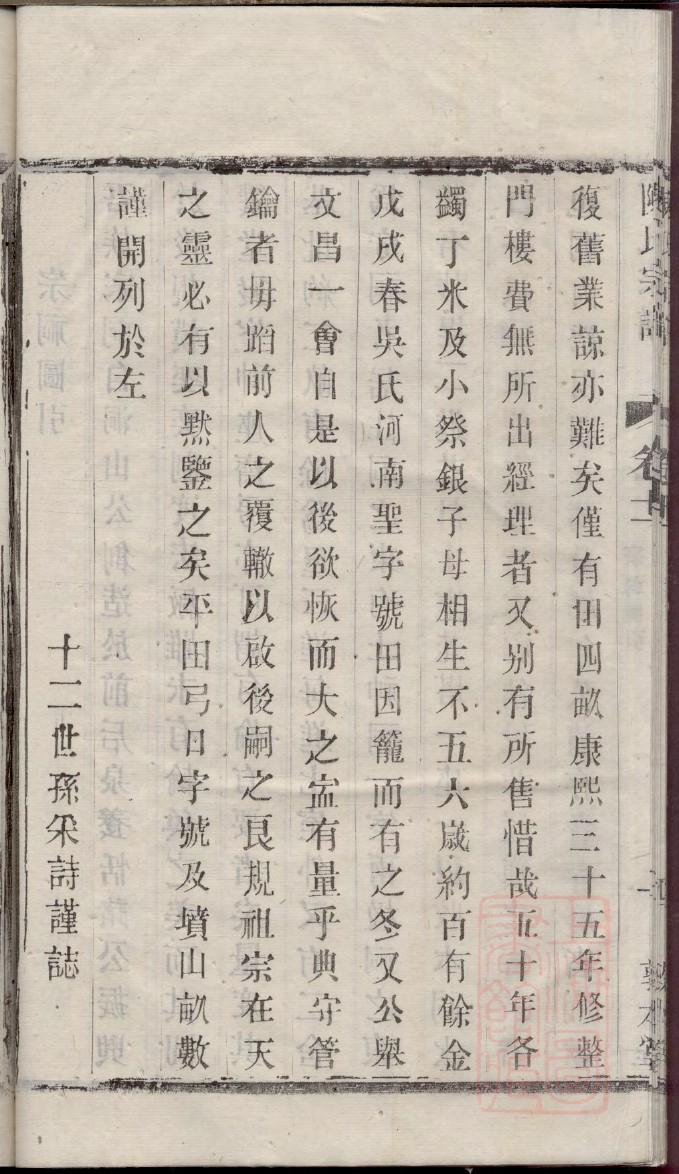 陳氏宗譜 卷十二 敦本堂
復舊業諒亦難矣僅有田四畝康熙三十五年修整
門樓費無所出經理者又别有所售惜哉五十年各
蠲丁米及小祭銀子母相生不五六歲約百有餘金
戊戌春吳氏河南聖字號田因籠而有之冬又公舉
文昌一會自是以後欲恢而大之寍有量乎典守管
鑰者毋蹈前人之覆轍以啟後嗣之良規祖宗在天
之靈必有以默鑒之矣平田弓口字號及墳山畝數
謹開列於左
十二世孫釆詩謹誌